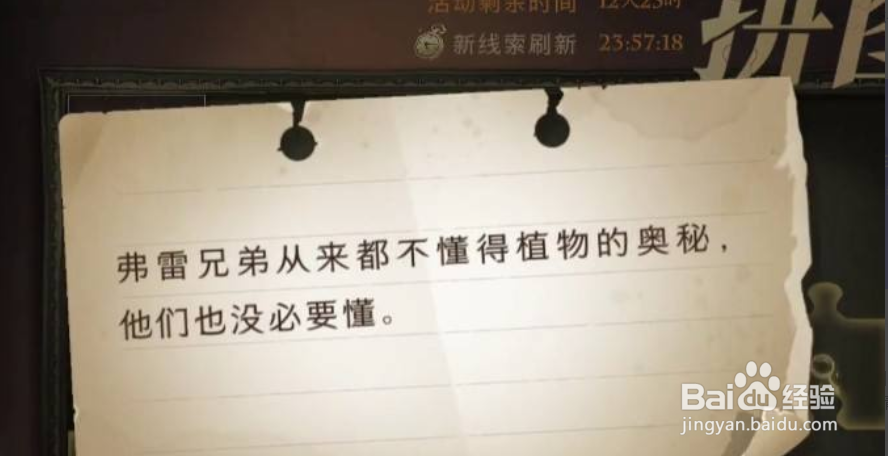 活动剩余时间 12天23时
新线索刷新 23:57:18
拼图
弗雷兄弟从来都不懂得植物的奥秘，
他们也没必要懂。
Baidu经验
jingyan.baidu.com